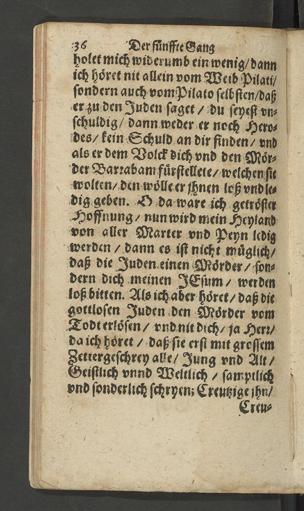 36 Der fünffte Gang
holet mich widerumb ein wenig / dann
ich höret nit allein vom Weib Pilati /
sondern auch vom Pilato selbsten / daß
er zu den Juden saget / du seyest vn-
schuldig / dann weder er noch Hero-
des / kein Schuld an dir finden / vnd
als er dem Volck dich vnd den Mör-
der Barrabam fürstellete / welchen sie
wolten / den wölle er ihnen loß vnd le-
dig geben. O da ware ich getröster
Hoffnung / nun wird mein Heyland
von aller Marter vnd Peyn ledig
werden / dann es ist nicht müglich /
daß die Juden einen Mörder / son-
dern dich meinen JEsum / werden
loß bitten. Als ich aber höret / daß die
gottlosen Juden den Mörder vom
Todt erlösen / vnd nit dich / ja Herz /
da ich höret / daß sie erst mit grossem
Zettergeschrey alle / Jung vnd Alt /
Geistlich vnnd Weltlich / samptlich
vnd sonderlich schryen; Creutzige ihn /
Creu-